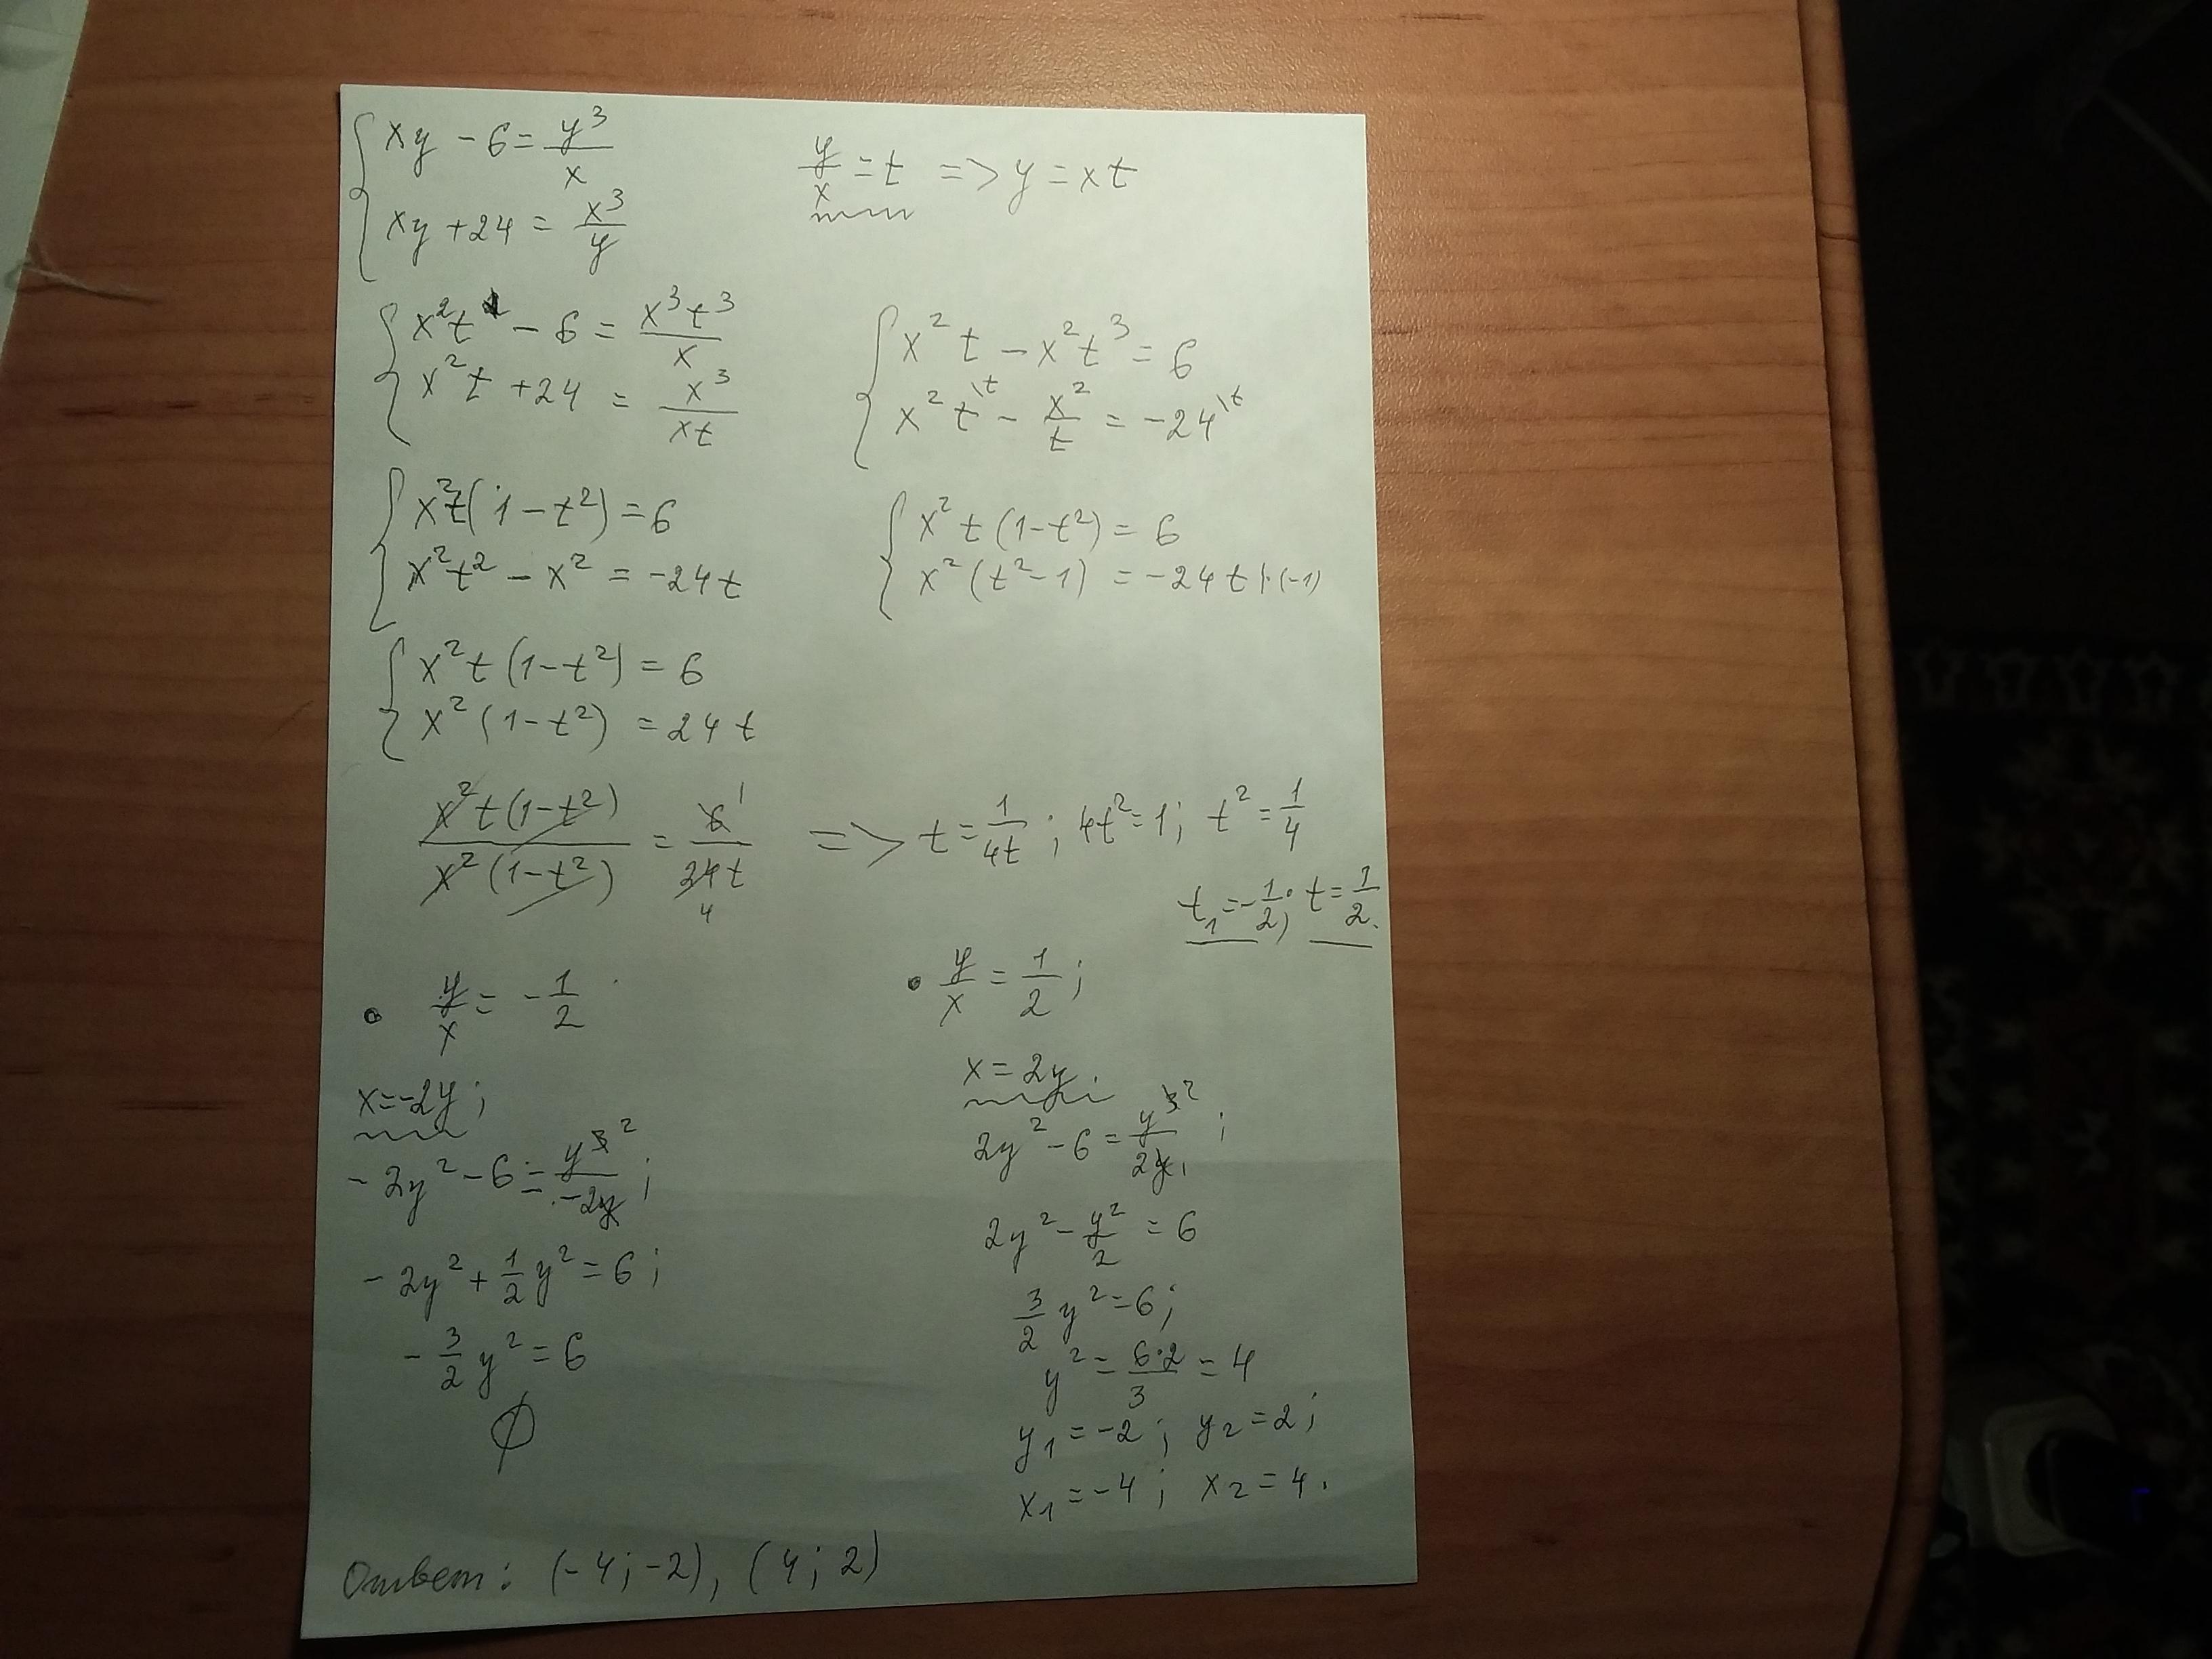 xy - 6 = y³/x
y/x = t => y = xt
xy + 24 = x³/y
x²t - 6 = x³t³/x
x²t + 24 = x³/xt
x²t - x²t³ = 6
x²t\t - x²/t = -24\t
x²t(1-t²) = 6
x²t² - x² = -24t
x²t(1-t²) = 6
x²(t²-1) = -24t |·(-1)
x²t(1-t²) = 6
x²(1-t²) = 24t
x²t(1-t²)/x²(1-t²) = 6 1/24t 4 => t = 1/4t; 4t² = 1; t² = 1/4
t₁ = -1/2; t = 1/2.
• y/x = -1/2
x = -2y;
-2y² - 6 = y³ ²/-2y;
-2y² + 1/2 y² = 6;
-3/2 y² = 6
∅
• y/x = 1/2;
x = 2y.
2y² - 6 = y³ ²/2y 1;
2y² - y²/2 = 6
3/2 y² = 6;
y² = 6·2/3 = 4
y₁ = -2; y₂ = 2;
x₁ = -4; x₂ = 4.
Ответ: (-4; -2), (4; 2)